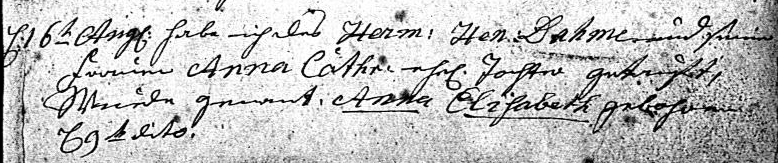 d. 16t Aug. habe ich des Herm: Hen. Dahme und seiner
Frauen Anna Cath. ehel. Tochter getauft,
Wurde genant. Anna Elisabeth gebohren
d 9t dito.